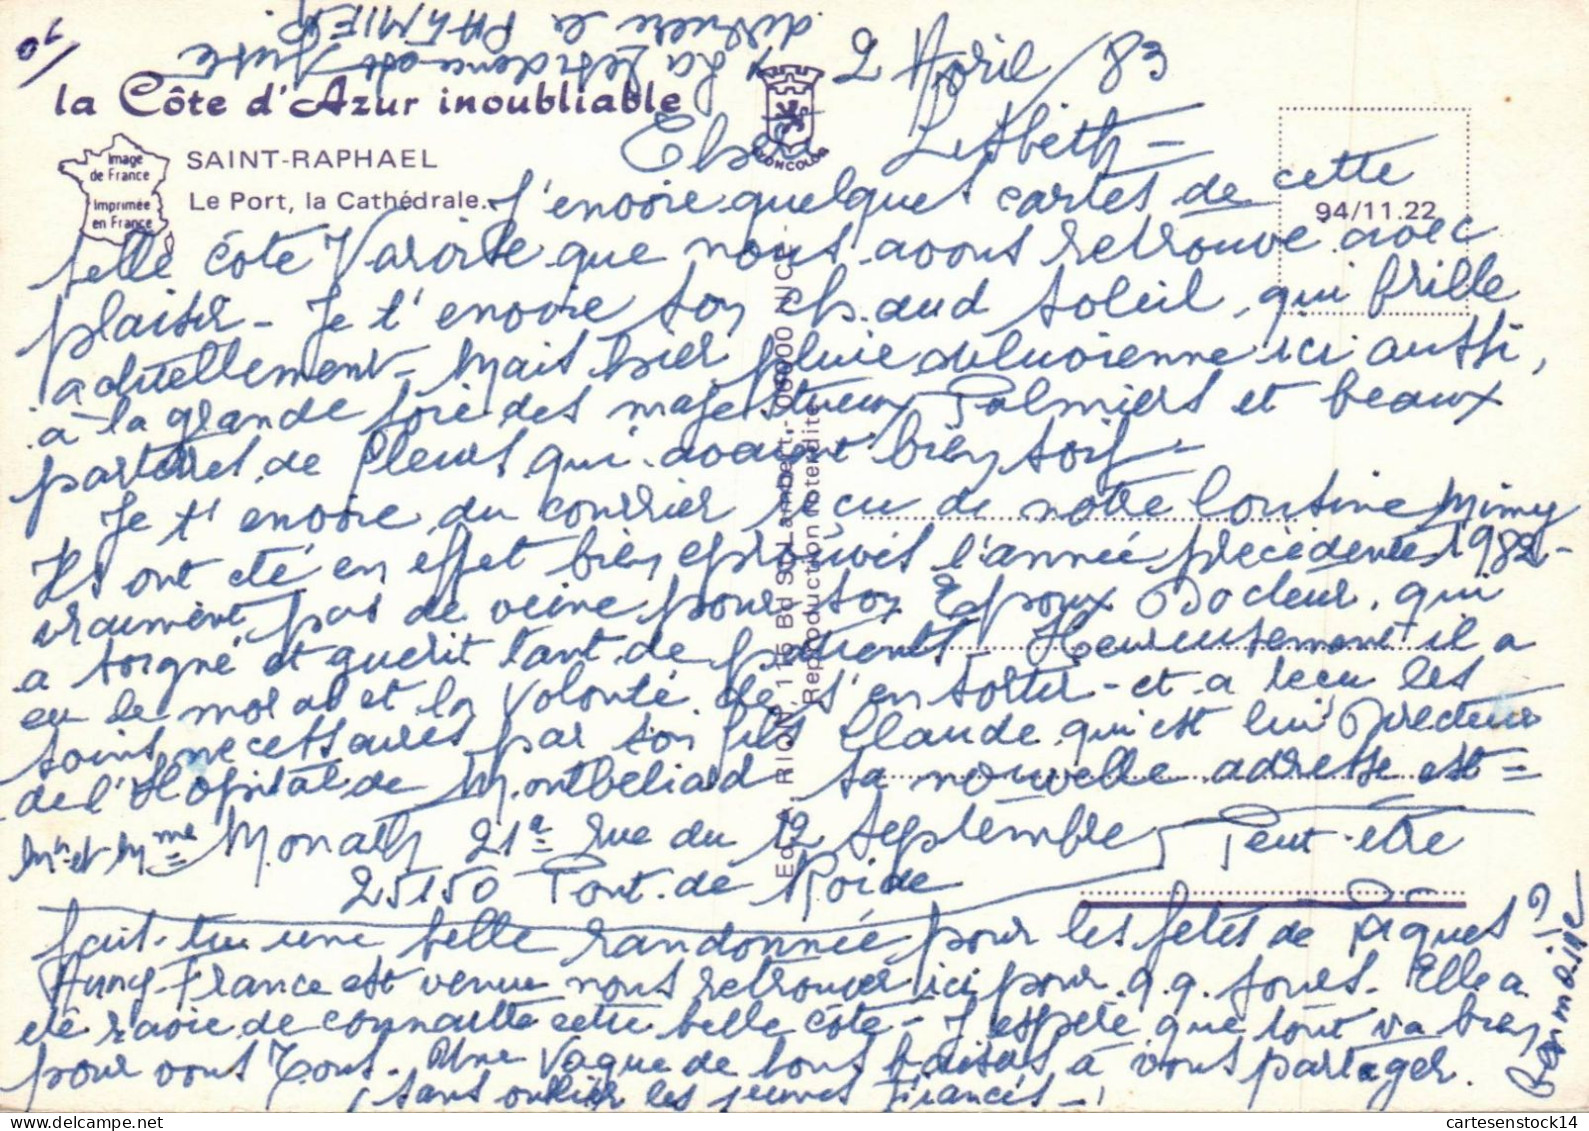 La Résidence est juste
derrière le PALMIER
2 Avril 83
la Côte d'Azur inoubliable
Image
de France
Imprimée
en France
SAINT-RAPHAEL
Le Port, la Cathédrale.
94/11.22
Lisbeth -
J'envoie quelques cartes de cette
belle côte Varoise que nous avons retrouvé avec
plaisir - Je t'envoie son chaud soleil, qui brille
actuellement - Mais hier pluie diluvienne ici aussi,
à la grande joie des majestueux Palmiers et beaux
parterres de fleurs qui avaient bien soif -
Je t'envoie du courrier reçu de notre Cousine Mimy
Ils ont été en effet bien éprouvés l'année précédente 1982 -
vraiment pas de veine pour son Epoux Docteur, qui
a soigné et guérit tant de patients - Heureusement il a
eu le moral et la volonté de s'en sortir - et a reçu les
soins necessaires par son fils Claude, qui est lui Directeur
de l'Hôpital de Montbeliard sa nouvelle adresse est =
Mr et Mme Monath 21a rue du 12 Septembre
25150 Pont de Roide
Peut-être
fait-tu une belle randonnée pour les fêtes de Pâques?
Anny-France est venue nous retrouver ici pour q.q. jours. Elle a
été ravie de connaître cette belle côte - J'espère que tout va bien
pour vous Tous. Une Vague de bons baisers à vous partager.
sans oublier les jeunes Fiancés - !
Edit. RION, 116 Bd St Lambert - 06000 NICE -
Reproduction interdite
cartesenstock14